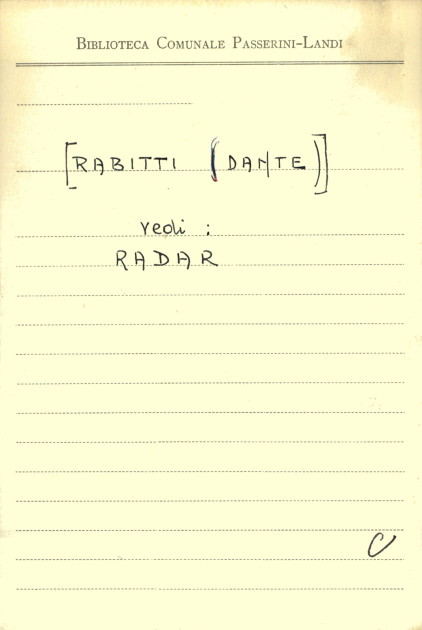 BIBLIOTECA COMUNALE PASSERINI-LANDI
[RABITTI (DANTE)]
vedi :
RADAR
C